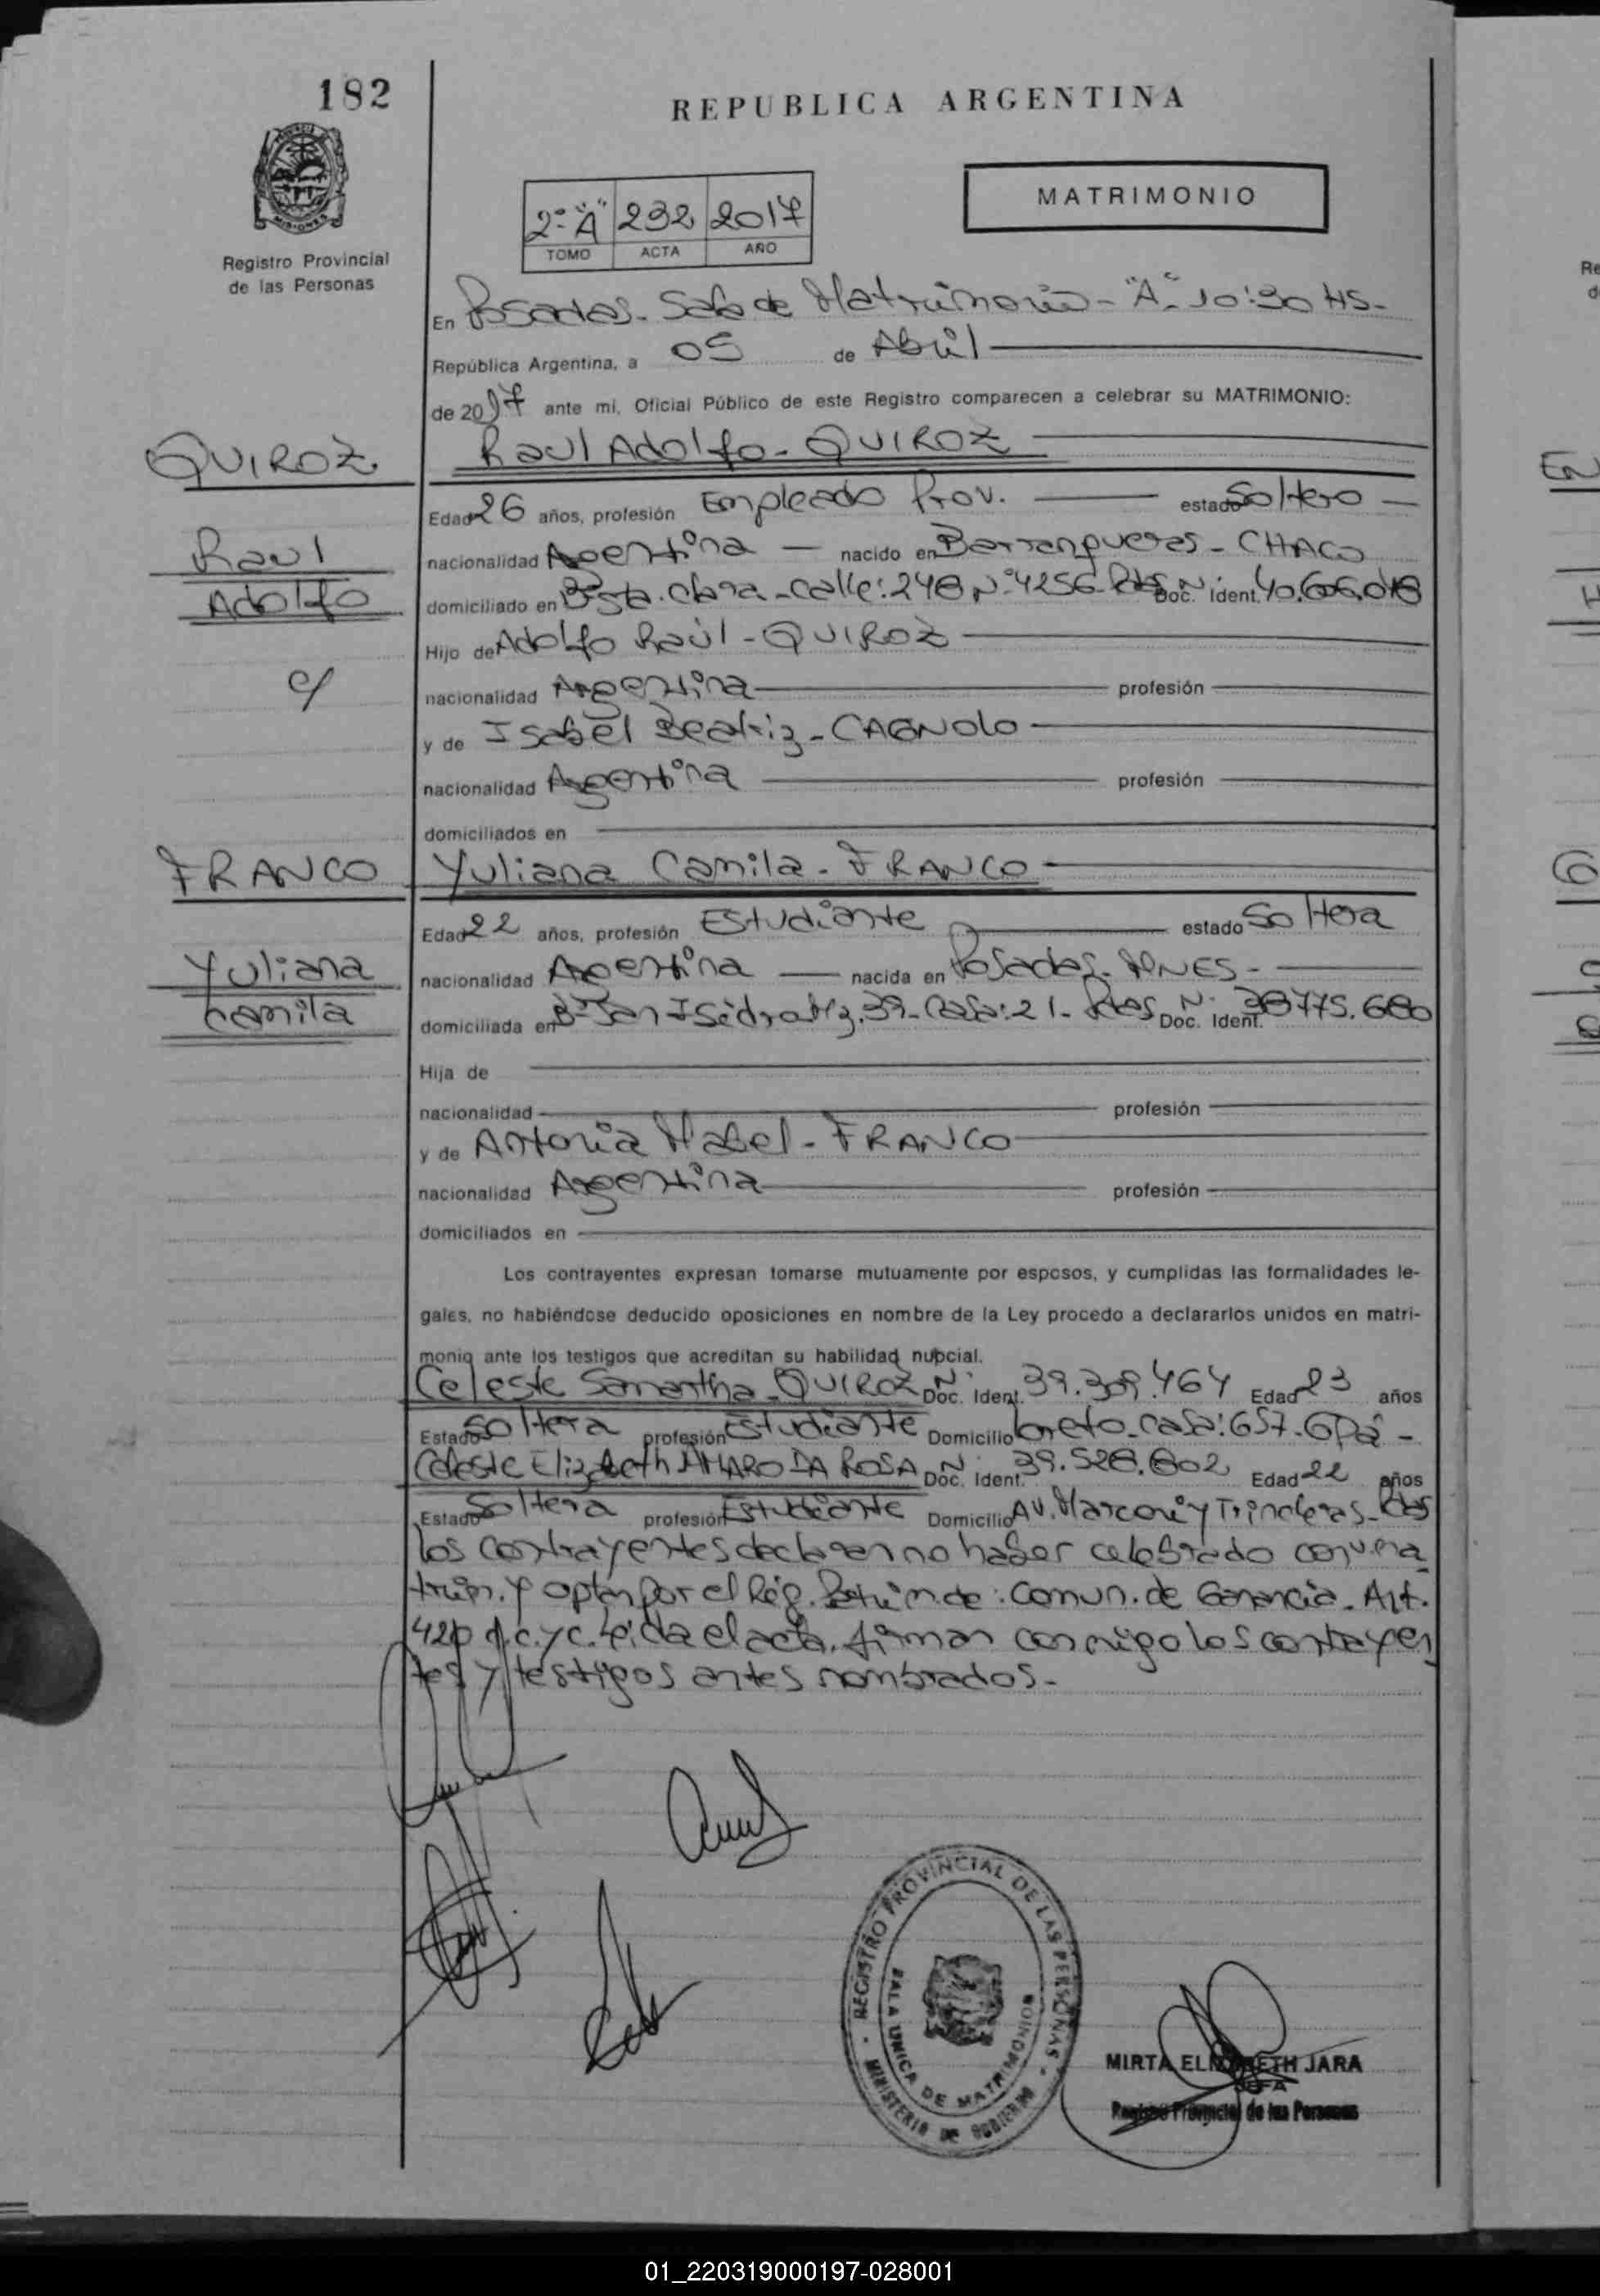 182
REPUBLICA ARGENTINA
MATRIMONIO
2º "A" 232 2017
TOMO ACTA AÑO
Registro Provincial
de las Personas
En Posadas. Sala de Matrimonio - "A" - 10:30 HS -
República Argentina, a 05 de Abril
de 2017 ante mi, Oficial Público de este Registro comparecen a celebrar su MATRIMONIO:
QUIROZ
Raul Adolfo
c/
Raul Adolfo - QUIROZ
Edad 26 años, profesión Empleado Prov. estado Soltero
nacionalidad Argentina nacido en Barranqueras - CHACO
domiciliado en Bº Sta. Clara - Calle: 248 Nº 4256 - Pdas Doc. Ident. Nº 40.606.018
Hijo de Adolfo Raúl - QUIROZ
nacionalidad Argentina profesión
y de Isabel Beatriz - CAGNOLO
nacionalidad Argentina profesión
domiciliados en
FRANCO
Yuliana
Camila
Yuliana Camila - FRANCO
Edad 22 años, profesión Estudiante estado Soltera
nacionalidad Argentina nacida en Posadas - MNES -
domiciliada en Bº San Isidro Mz. 39 - Casa: 21 - Pdas Doc. Ident. Nº 38775.680
Hija de
nacionalidad profesión
y de Antonia Mabel - FRANCO
nacionalidad Argentina profesión
domiciliados en
Los contrayentes expresan tomarse mutuamente por esposos, y cumplidas las formalidades le-
gales, no habiéndose deducido oposiciones en nombre de la Ley procedo a declararlos unidos en matri-
monio ante los testigos que acreditan su habilidad nupcial.
Celeste Samantha - QUIROZ Doc. Ident. Nº 39.309.464 Edad 23 años
Estado Soltera profesión Estudiante Domicilio Loreto - Casa: 657 - GPá -
Celeste Elizabeth AMARO DA ROSA Doc. Ident. Nº 39.528.602 Edad 22 años
Estado Soltera profesión Estudiante Domicilio Av. Marconi y Trincheras - Pdas
los contrayentes declaran no haber celebrado conv. ma
trim. y optan por el Rég. Patrim. de: Comun. de Ganancia - Art.
420 d. c. y c. Leída el acta, firman conmigo los contrayen
tes y testigos antes nombrados -
REGISTRO PROVINCIAL DE LAS PERSONAS
SALA UNICA DE MATRIMONION
MINISTERIO DE GOBIERNO
MIRTA ELIZABETH JARA
Registro Provincial de las Personas
01_220319000197-028001